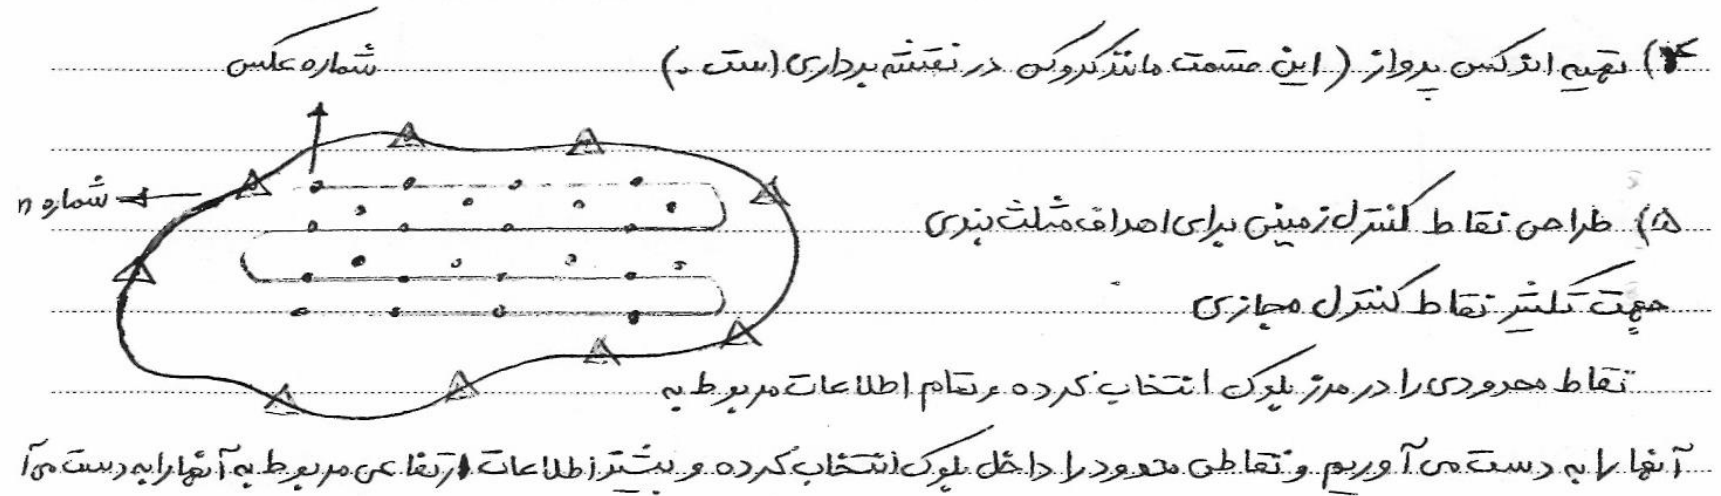 ۴) تهیه اندکس پرواز ( این قسمت مانند کروکی در نقشه برداری است . )
شماره عکس
شماره n
۵) طراحی نقاط کنترل زمینی برای اهداف مثلث بندی
جهت تکثیر نقاط کنترل مجازی
نقاط محدودی را در مرز بلوک انتخاب کرده و تمام اطلاعات مربوط به
آنها را به دست می آوریم و نقاطی محدود را داخل بلوک انتخاب کرده و بیشتر اطلاعات ارتفاعی مربوط به آنها را به دست می آ